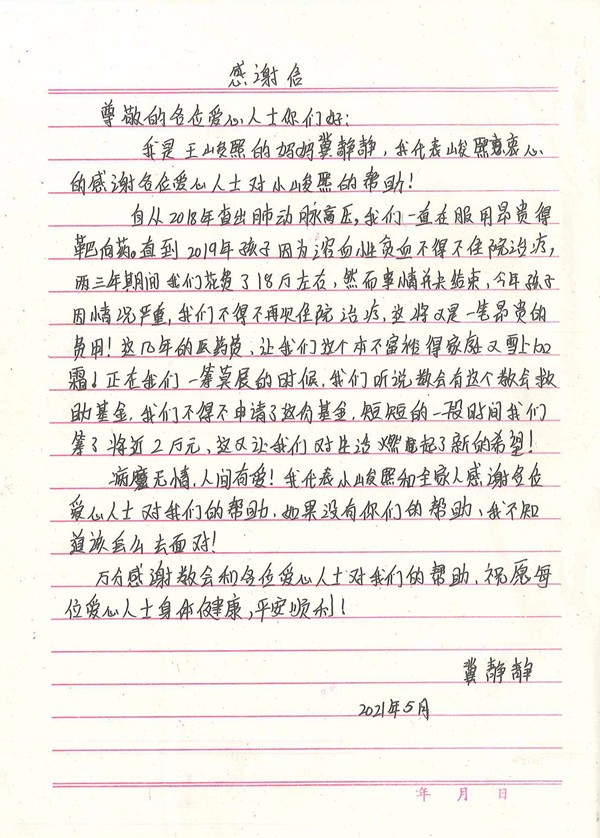 感谢信
尊敬的各位爱心人士你们好:
我是王峻熙的妈妈冀静静,我代表峻熙衷衷心
的感谢各位爱心人士对小峻熙的帮助!
自从2018年查出肺动脉高压,我们一直在服用昂贵得
靶向药。直到2019年孩子因为溶血性贫血不得不住院治疗,
两三年期间我们花费了18万左右,然而事情并未结束,今年孩子
因情况严重,我们不得不再次住院治疗,这将又是一笔昂贵的
费用!这几年的医药费,让我们这个本不富裕得家庭又雪上加
霜!正在我们一筹莫展的时候,我们听说教会有这个教会救
助基金,我们不得不申请了这有基金,短短的一段时间我们
筹了将近2万元,这又让我们对生活燃起了新的希望!
病魔无情,人间有爱!我代表小峻熙和全家人感谢各位
爱心人士对我们的帮助,如果没有你们的帮助、我不知
道该怎么去面对!
万分感谢教会和各位爱心人士对我们的帮助,祝愿每
位爱心人士身体健康,平安顺利!
冀静静
2021年5月
年 月 日